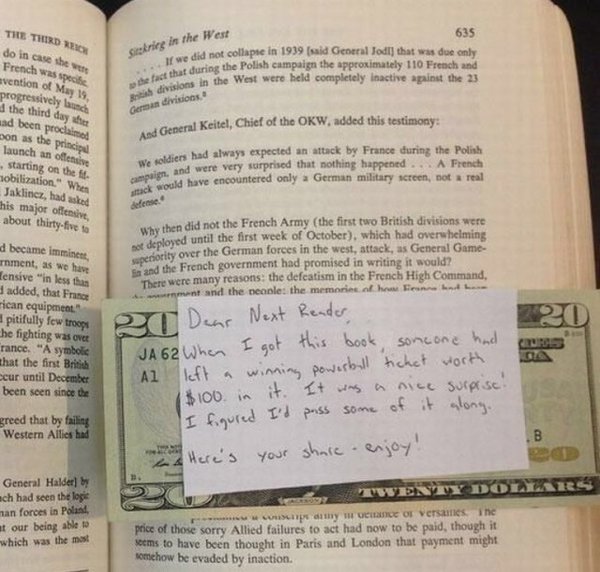 THE THIRD REICH
do in case she were
French was specific.
vention of May 19,
progressively launch
d the third day after
ad been proclaimed
oon as the principal
launch an offensive
, starting on the fif-
nobilization." When
Jaklincz, had asked
his major offensive,
about thirty-five to
d became imminent,
rnment, as we have
fensive "in less than
d added, that France
rican equipment."
d pitifully few troops
he fighting was over
rance. "A symbolic
that the first British
ccur until December
been seen since the
greed that by failing
Western Allies had
General Halder] by
ch had seen the logic
nan forces in Poland,
t our being able to
which was the most
Sitzkrieg in the West
635
. . . . If we did not collapse in 1939 [said General Jodl] that was due only
to the fact that during the Polish campaign the approximately 110 French and
British divisions in the West were held completely inactive against the 23
German divisions.⁸
And General Keitel, Chief of the OKW, added this testimony:
We soldiers had always expected an attack by France during the Polish
campaign, and were very surprised that nothing happened . . . A French
attack would have encountered only a German military screen, not a real
defense.⁹
Why then did not the French Army (the first two British divisions were
not deployed until the first week of October), which had overwhelming
superiority over the German forces in the west, attack, as General Game-
lin and the French government had promised in writing it would?
There were many reasons: the defeatism in the French High Command,
the government and the people; the memories of how France had been
20
20
JA 62
A1
Dear Next Reader,
When I got this book, someone had
left a winning powerball ticket worth
$100. in it. It was a nice surprise!
I figured I'd pass some of it along.
Here's your share - enjoy!
B
20
20
TWENTY DOLLARS
a conscript army in defiance of Versailles. The
price of those sorry Allied failures to act had now to be paid, though it
seems to have been thought in Paris and London that payment might
somehow be evaded by inaction.